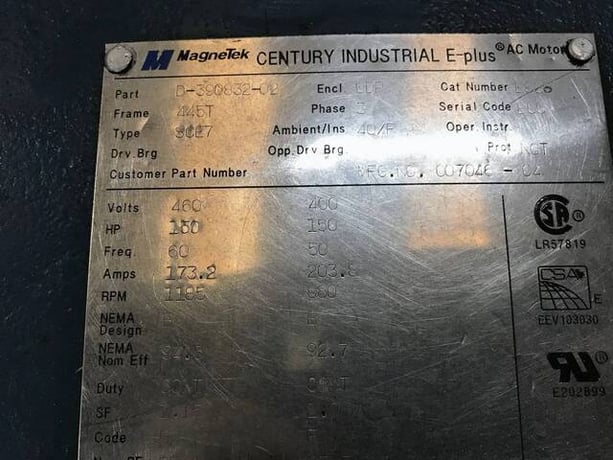 M MagneTek CENTURY INDUSTRIAL E-plus® AC Motor
Part D-390832-02 Encl Cat Number
Frame 445T Phase 3 Serial Code
Type SCE7 Ambient/Ins 40/F Oper. Instr.
Drv. Brg Opp. Drv Brg. Prot NOT
Customer Part Number MFG.NO. 007046 - 04
Volts 460 400
HP 150 150
Freq. 60 50
Amps 173.2
RPM 1185
NEMA
Design
NEMA
Nom Eff 92.7
Duty CONT CONT
SF
Code
SA ®
LR57819
CSA
E
EEV103030
RU
E202899